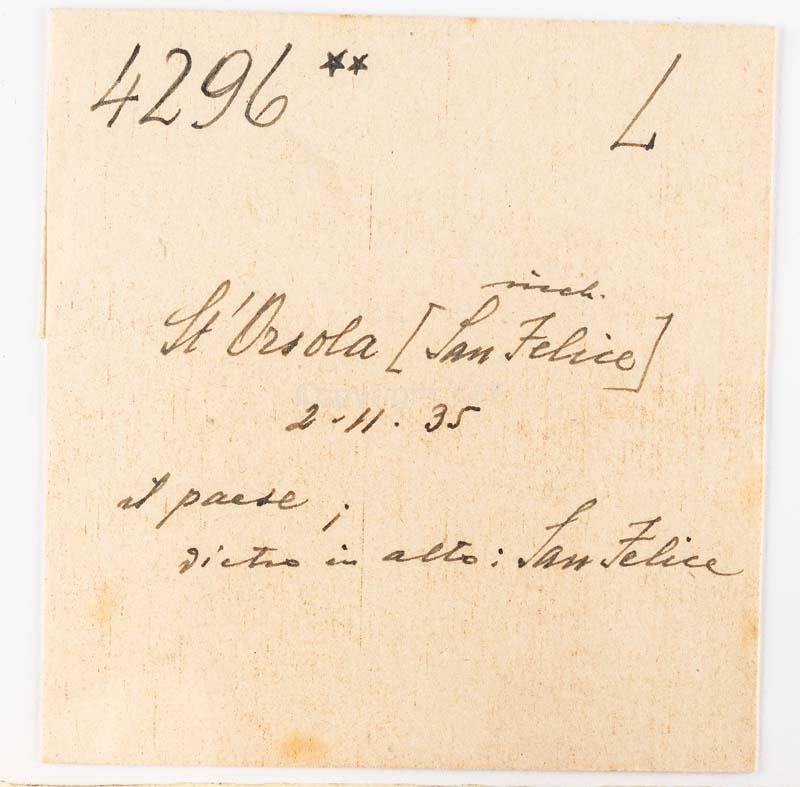 4296 ** L
St'Orsola [San Felice]
2-11. 35
il paese ;
dietro in alto: San Felice